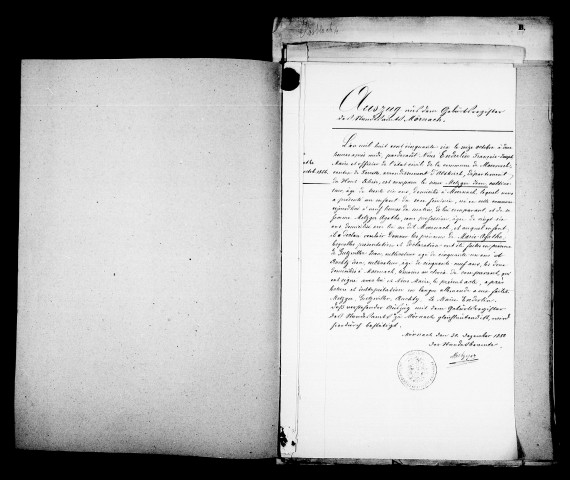 B.
Auszug aus dem Geburtsregister
des Standesamts Mörnach.
L'an mil huit cent cinquante six le seize octobre à deux
heures après midi, pardevant Nous Enderlin François Joseph
Maire et officier de l'état civil de la commune de Moernach,
canton de Ferrette arrondissement d'Altkirch, département
du Haut Rhin, est comparu le sieur Metzger Jean, cultiva-
teur âgé de trente six ans, domicilié à Moernach, lequel nous
a présenté un enfant du sexe féminin, né en cette commune
aujourd'hui à neuf heures du matin, de lui comparant, et de sa
femme Metzger Agathe, sans profession âgée de vingt six
ans domiciliée au lieu dit Moernach, et auquel enfant
il a déclaré vouloir donner les prénoms de Marie Agathe,
lesquelles présentation et déclaration ont été faites en présence
de Gutzwiller Jean, cultivateur âgé de cinquante six ans et
Ruchty Jean, cultivateur âgé de cinquante neuf ans, les deux
domiciliés à Moernach, témoins au choix du comparant, qui
ont signé avec lui et Nous Maire, le présent acte, après
lecture et interprétation en langue allemande à eux faite.
Metzger, Gutzwiller, Ruchty, Le Maire Enderlin.
Daß vorstehender Auszug mit dem Geburtsregister
des Standesamts zu Mörnach gleichlautend ist, wird
hierdurch bestätigt.
Mörnach den 31. Dezember 1888
Der Standesbeamte
Metzger